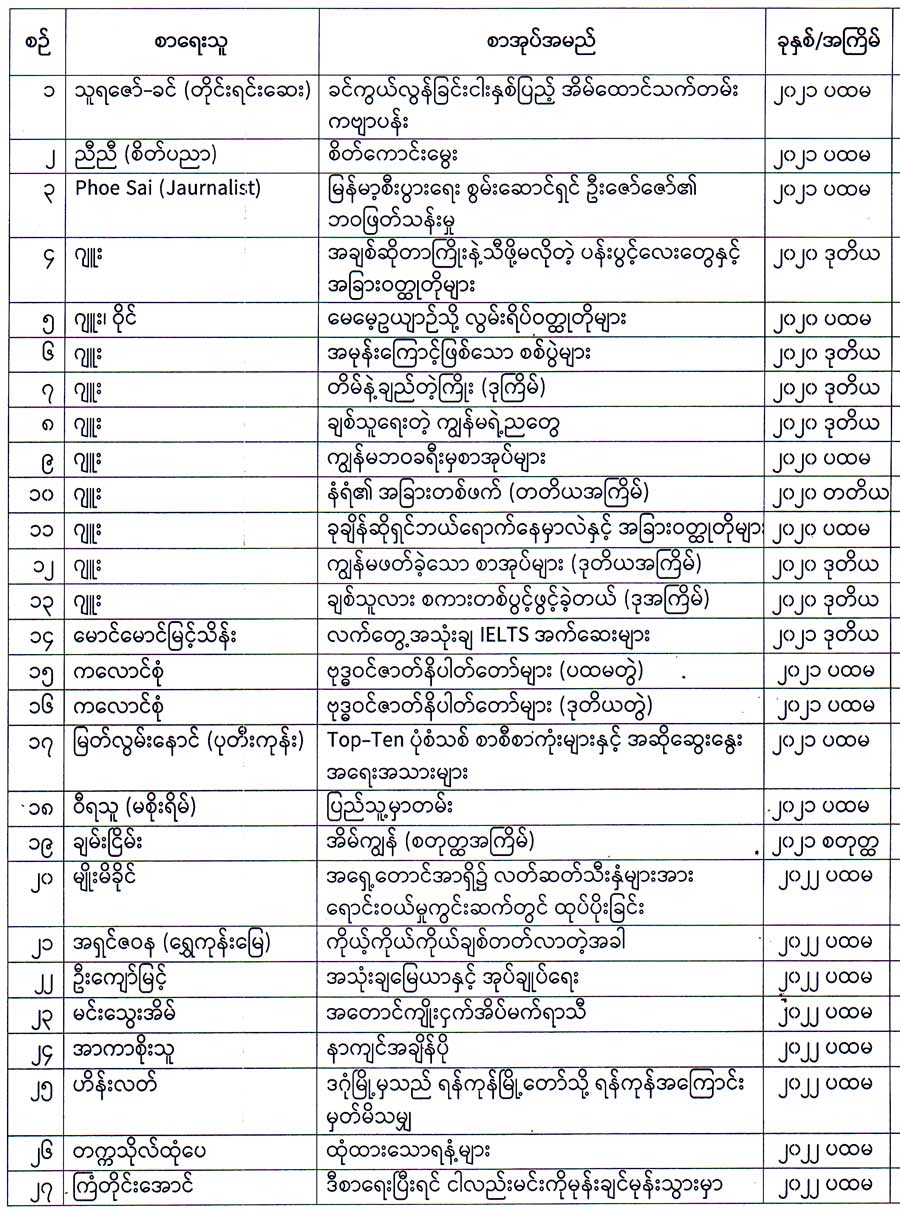 စဉ် စာရေးသူ စာအုပ်အမည် ခုနှစ်/အကြိမ်
၁ သူရဇော်-ခင် (တိုင်းရင်းဆေး) ခင်ကွယ်လွန်ခြင်းငါးနှစ်ပြည့် အိမ်ထောင်သက်တမ်း ၂၀၂၁ ပထမ
ကဗျာပန်း
၂ ညီညီ (စိတ်ပညာ) စိတ်ကောင်းမွေး ၂၀၂၁ ပထမ
၃ Phoe Sai (Jaurnalist) မြန်မာ့စီးပွားရေး စွမ်းဆောင်ရှင် ဦးဇော်ဇော်၏ ၂၀၂၁ ပထမ
ဘဝဖြတ်သန်းမှု
၄ ဂျူး အချစ်ဆိုတာကြိုးနဲ့သီဖို့မလိုတဲ့ ပန်းပွင့်လေးတွေနှင့် ၂၀၂၀ ဒုတိယ
အခြားဝတ္ထုတိုများ
၅ ဂျူး၊ ဝိုင် မေမေ့ဥယျာဉ်သို့ လွမ်းရိပ်ဝတ္ထုတိုများ ၂၀၂၀ ပထမ
၆ ဂျူး အမုန်းကြောင့်ဖြစ်သော စစ်ပွဲများ ၂၀၂၀ ဒုတိယ
၇ ဂျူး တိမ်နဲ့ချည်တဲ့ကြိုး (ဒုကြိမ်) ၂၀၂၀ ဒုတိယ
၈ ဂျူး ချစ်သူရေးတဲ့ ကျွန်မရဲ့ညတွေ ၂၀၂၀ ဒုတိယ
၉ ဂျူး ကျွန်မဘဝခရီးမှစာအုပ်များ ၂၀၂၀ ပထမ
၁၀ ဂျူး နံရံ၏ အခြားတစ်ဖက် (တတိယအကြိမ်) ၂၀၂၀ တတိယ
၁၁ ဂျူး ခုချိန်ဆိုရှင်ဘယ်ရောက်နေမှာလဲနှင့် အခြားဝတ္ထုတိုများ ၂၀၂၀ ပထမ
၁၂ ဂျူး ကျွန်မဖတ်ခဲ့သော စာအုပ်များ (ဒုတိယအကြိမ်) ၂၀၂၀ ဒုတိယ
၁၃ ဂျူး ချစ်သူလား စကားတစ်ပွင့်ဖွင့်ခဲ့တယ် (ဒုအကြိမ်) ၂၀၂၀ ဒုတိယ
၁၄ မောင်မောင်မြင့်သိန်း လက်တွေ့အသုံးချ IELTS အက်ဆေးများ ၂၀၂၁ ဒုတိယ
၁၅ ကလောင်စုံ ဗုဒ္ဓဝင်ဇာတ်နိပါတ်တော်များ (ပထမတွဲ) ၂၀၂၁ ပထမ
၁၆ ကလောင်စုံ ဗုဒ္ဓဝင်ဇာတ်နိပါတ်တော်များ (ဒုတိယတွဲ) ၂၀၂၁ ပထမ
၁၇ မြတ်လွမ်းနောင် (ပုတီးကုန်း) Top-Ten ပုံစံသစ် စာစီစာကုံးများနှင့် အဆိုဆွေးနွေး ၂၀၂၁ ပထမ
အရေးအသားများ
၁၈ ဝီရသူ (မစိုးရိမ်) ပြည်သူ့မှာတမ်း ၂၀၂၁ ပထမ
၁၉ ချမ်းငြိမ်း အိမ်ကျွန် (စတုတ္ထအကြိမ်) ၂၀၂၁ စတုတ္ထ
၂၀ မျိုးမိခိုင် အရှေ့တောင်အာရှိ၌ လတ်ဆတ်သီးနှံများအား ၂၀၂၂ ပထမ
ရောင်းဝယ်မှုကွင်းဆက်တွင် ထုပ်ပိုးခြင်း
၂၁ အရှင်ဇဝန (ရွှေကုန်းမြေ) ကိုယ့်ကိုယ်ကိုယ်ချစ်တတ်လာတဲ့အခါ ၂၀၂၂ ပထမ
၂၂ ဦးကျော်မြင့် အသုံးချမြေယာနှင့် အုပ်ချုပ်ရေး ၂၀၂၂ ပထမ
၂၃ မင်းသွေးအိမ် အတောင်ကျိုးငှက်အိပ်မက်ရာသီ ၂၀၂၂ ပထမ
၂၄ အာကာစိုးသူ နာကျင်အချိန်ပို ၂၀၂၂ ပထမ
၂၅ ဟိန်းလတ် ဒဂုံမြို့မှသည် ရန်ကုန်မြို့တော်သို့ ရန်ကုန်အကြောင်း ၂၀၂၂ ပထမ
မှတ်မိသမျှ
၂၆ တက္ကသိုလ်ထုံပေ ထုံထားသောရနံ့များ ၂၀၂၂ ပထမ
၂၇ ကြံတိုင်းအောင် ဒီစာရေးပြီးရင် ငါလည်းမင်းကိုမုန်းချင်မုန်းသွားမှာ ၂၀၂၂ ပထမ